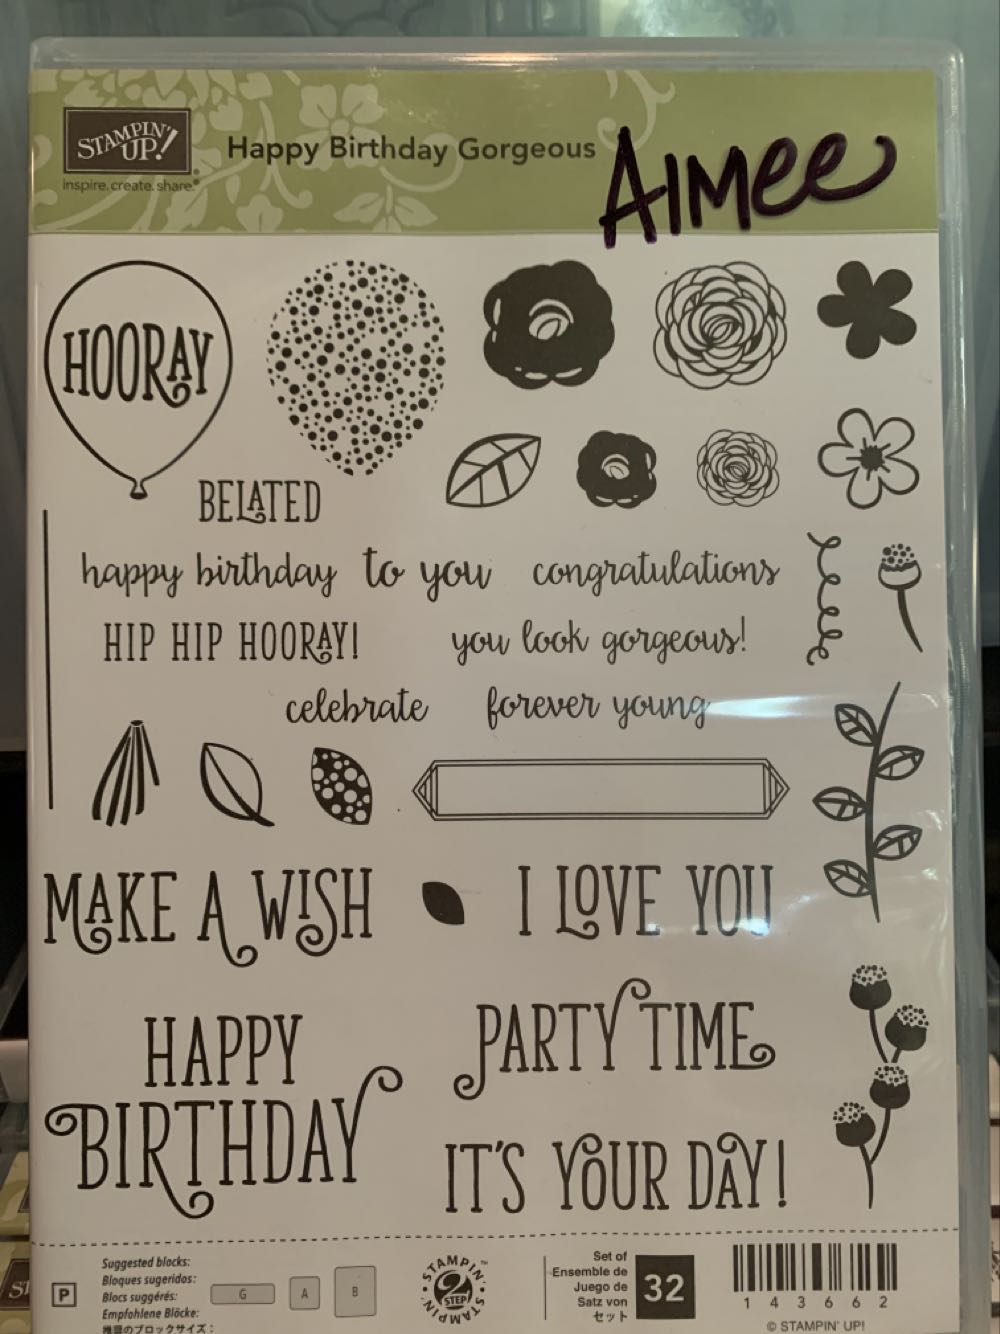 STAMPIN' UP!
inspire. create. share.®
Happy Birthday Gorgeous
AIMee
HOORAY
BELATED
happy birthday to you congratulations
HIP HIP HOORAY! you look gorgeous!
celebrate forever young
MAKE A WISH I LOVE YOU
HAPPY
BIRTHDAY
PARTY TIME
IT'S YOUR DAY!
P
Suggested blocks:
Bloques sugeridos:
Blocs suggérés:
Empfohlene Blöcke:
推奨のブロックサイズ:
G A B
STAMPIN' 2 STEP STAMPIN'™
Set of
Ensemble de
Juego de
Satz von
セット
32
1 4 3 6 6 2
© STAMPIN' UP!